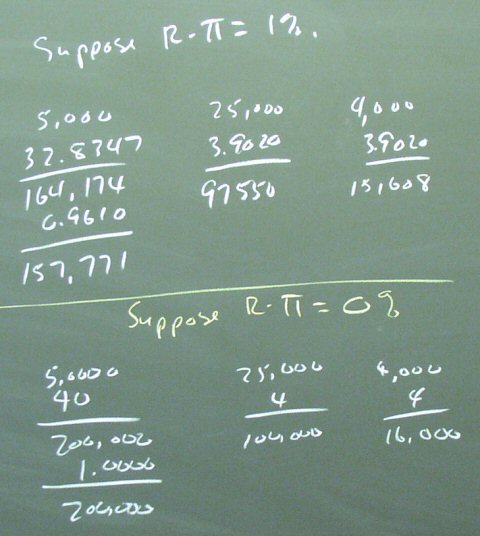 Suppose R-π = 1%.
5,000 25,000 4,000
32.8347 3.9020 3.9020
164,174 97550 15,608
0.9610
157,771
Suppose R-π = 0%
5,0000 25,000 4,000
40 4 4
200,000 100,000 16,000
1.0000
200,000